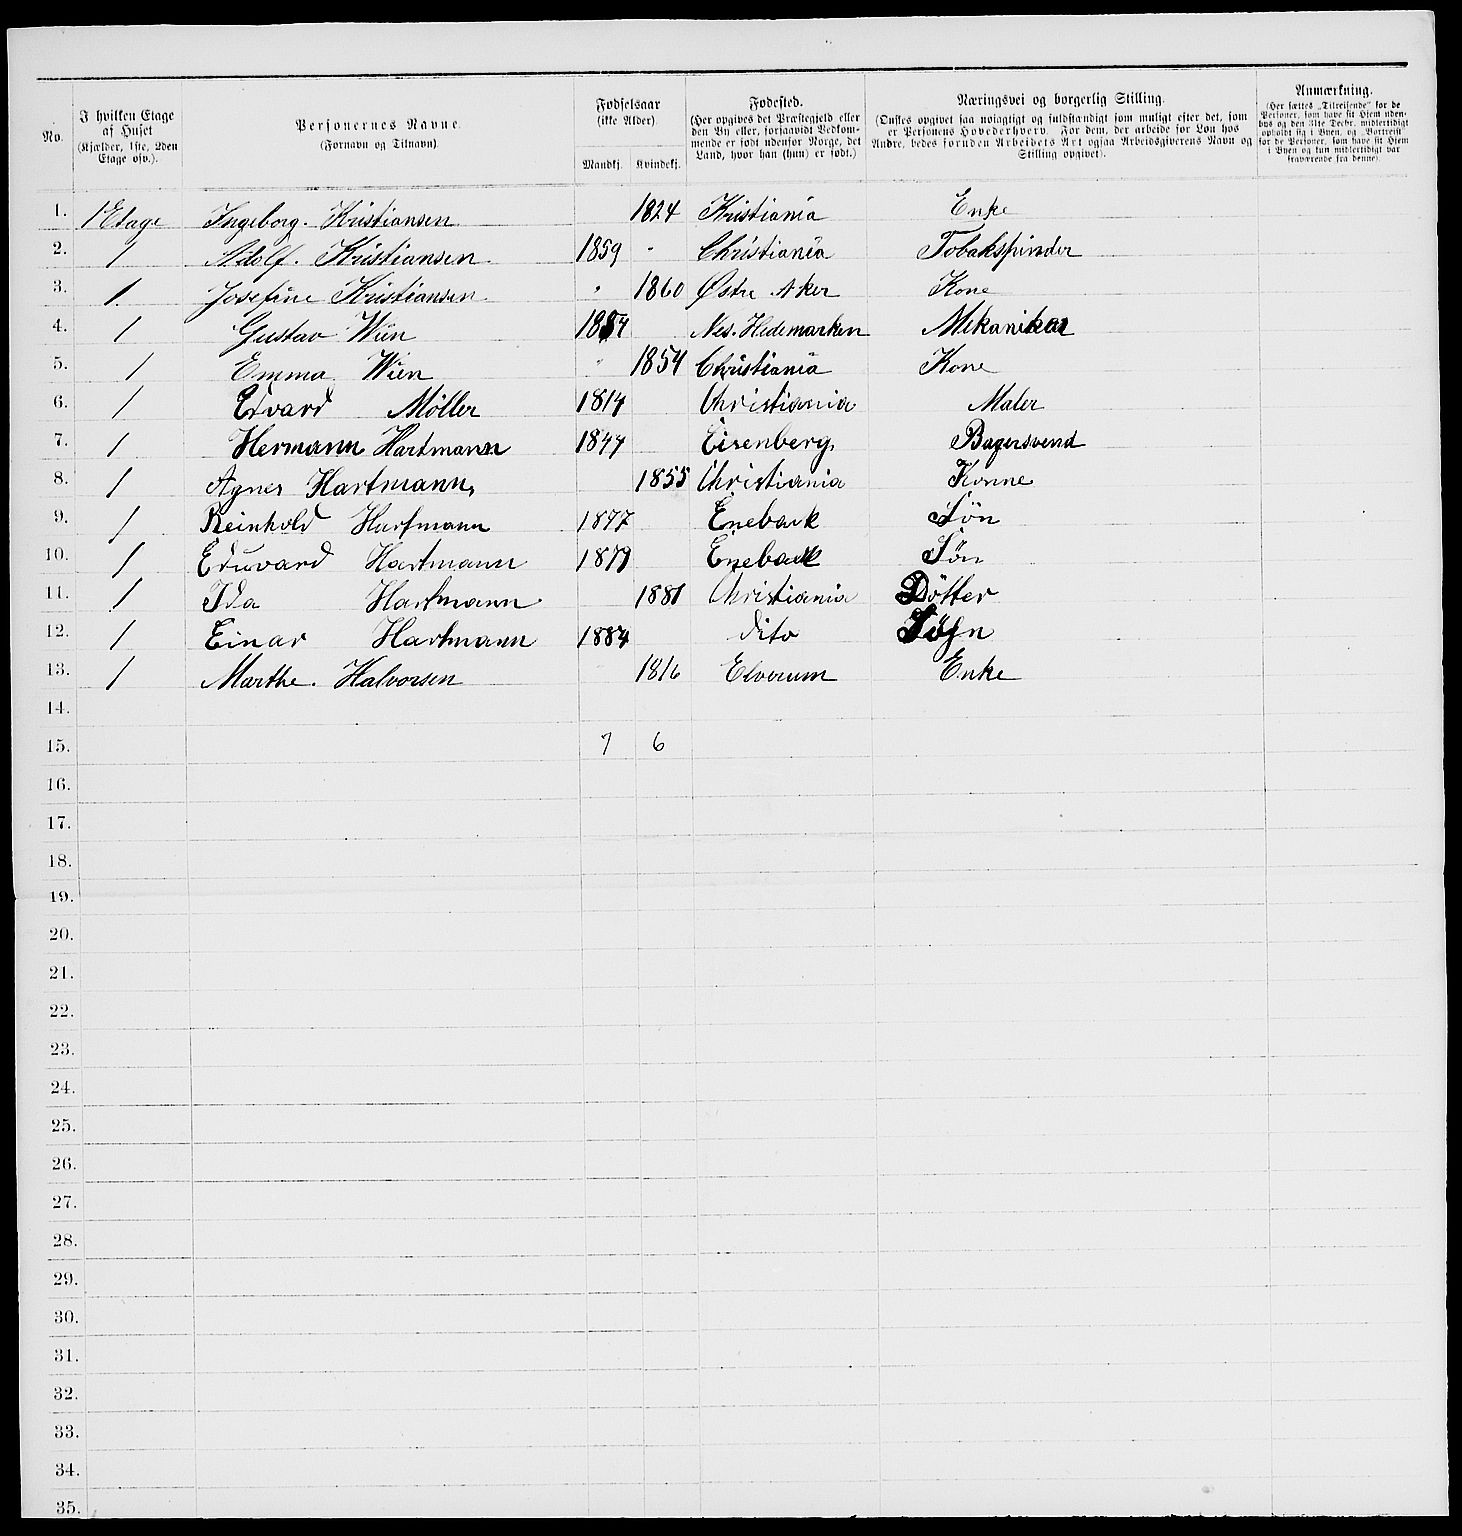 No.
I hvilken Etage af Huset (Kjælder, 1ste, 2den Etage osv.).
Personernes Navne. (Fornavn og Tilnavn)
Fødselsaar (ikke Alder).
Mandkj. Kvindekj.
Fødested. (Her opgives det Præstegjeld eller den By eller, forsaavidt Vedkommende er født udenfor Norge, det Land, hvor han (hun) er født.)
Næringsvei og borgerlig Stilling. (Ønskes opgivet saa nøiagtigt og fuldstændigt som muligt efter det, som er Personens Hovederhverv. For dem, der arbeide for Løn hos Andre, bedes foruden Arbeidets Art ogsaa Arbeidsgiverens Navn og Stilling opgivet).
Anmærkning. (Her sættes „Tilreisende" for de Personer, som have sit Hjem udenbys og den 31te Decbr. midlertidigt opholdt sig i Byen, og „Bortreist" for de Personer, som have sit Hjem i Byen og kun midlertidigt var fraværende fra denne).
1. 1 Etage Ingeborg. Kristiansen 1824 Kristiania Enke
2. 1 Adolf. Kristiansen. 1859 " Christiania Tobakspinder
3. 1. Josefine Kristiansen. " 1860 Østre Aker Kone
4. 1 Gustav Wiin 1854 Nes. Hedemarken Mekaniker
5. 1 Emma Wien " 1854 Christiania Kone
6. 1 Edvard Møller 1814 Christiania Maler
7. 1 Hermann Hartmann 1844 Eisenberg, Bagersvend
8. 1 Agnes Hartmann, 1855 Christiania Konne
9. 1 Reinhold Hartmann 1877 Eneback Søn
10. 1 Eduvard Hartmann 1879 Eneback Søn
11. 1 Ida Hartmann. 1881 Christiania Døtter
12. 1 Einar Hartmann 1884 dito Søn
13. 1 Marthe. Halvorsen 1816 Elverum Enke
14.
15. 7 6
16.
17.
18.
19.
20.
21.
22.
23.
24.
25.
26.
27.
28.
29.
30.
31.
32.
33.
34.
35.